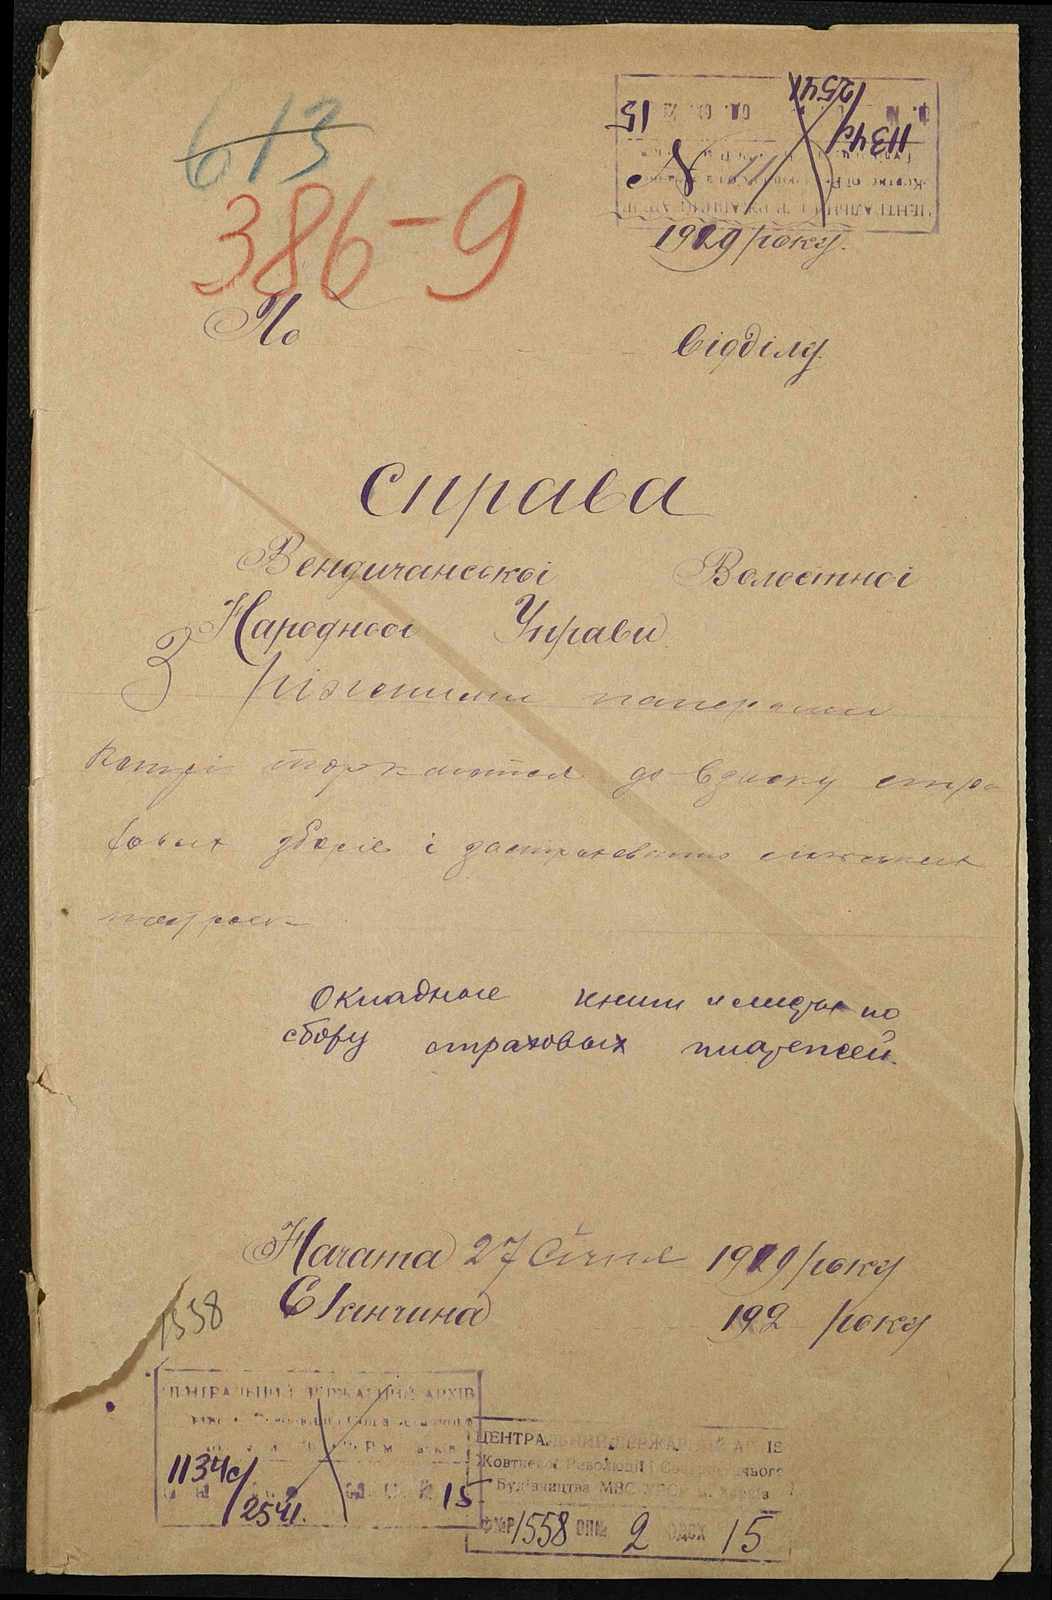 613
386-9
11340/2541 15
1929 року.
По відділу
Справа
Вендичанської Волостної
Народноі Управи
З ріжними паперами
котрі торкаются до вдиску страховых
зборів і застраховання
Окладные книги и списки по
сбору страховых платежей.
Начата 27 Січня 1929 року
Скінчина 192 року
1558
ЦЕНТРАЛЬНИЙ ДЕРЖАВНИЙ АРХІВ
1134с/2541. 15
ЦЕНТРАЛЬНИЙ ДЕРЖАВНИЙ АРХІВ
Жовтневої Революції і Соціалістичного
Будівництва МВС УРСР м. Харків
Ф№Р1558 ОП№ 2 ОДЗБ 15